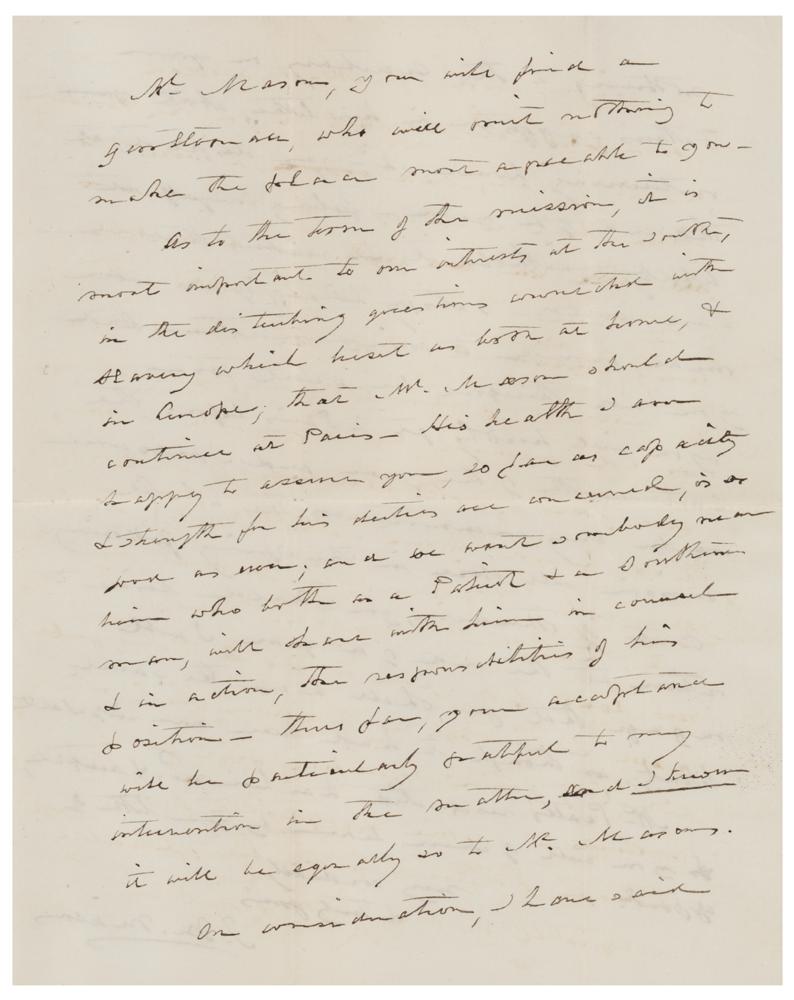 Mr. Mason, you will find a
gentleman, who will omit nothing to
make the place most agreeable to you –
As to the term of the mission, it is
most important to our interests at the South,
in the disturbing questions connected with
slavery which beset us both at home, &
in Europe, that Mr. Mason should
continue at Paris – His health I am
happy to assure you, so far as capacity
& strength for his duties are concerned, is as
good as ever; and we want somebody near
him who both as a Patriot & a Southern
man, will share with him in counsel
& in action, the responsibilities of his
position – Thus far, your acceptance
will be particularly grateful to my
intervention in the matter, and I know
it will be equally so to Mr. Mason.
On consideration, I have said